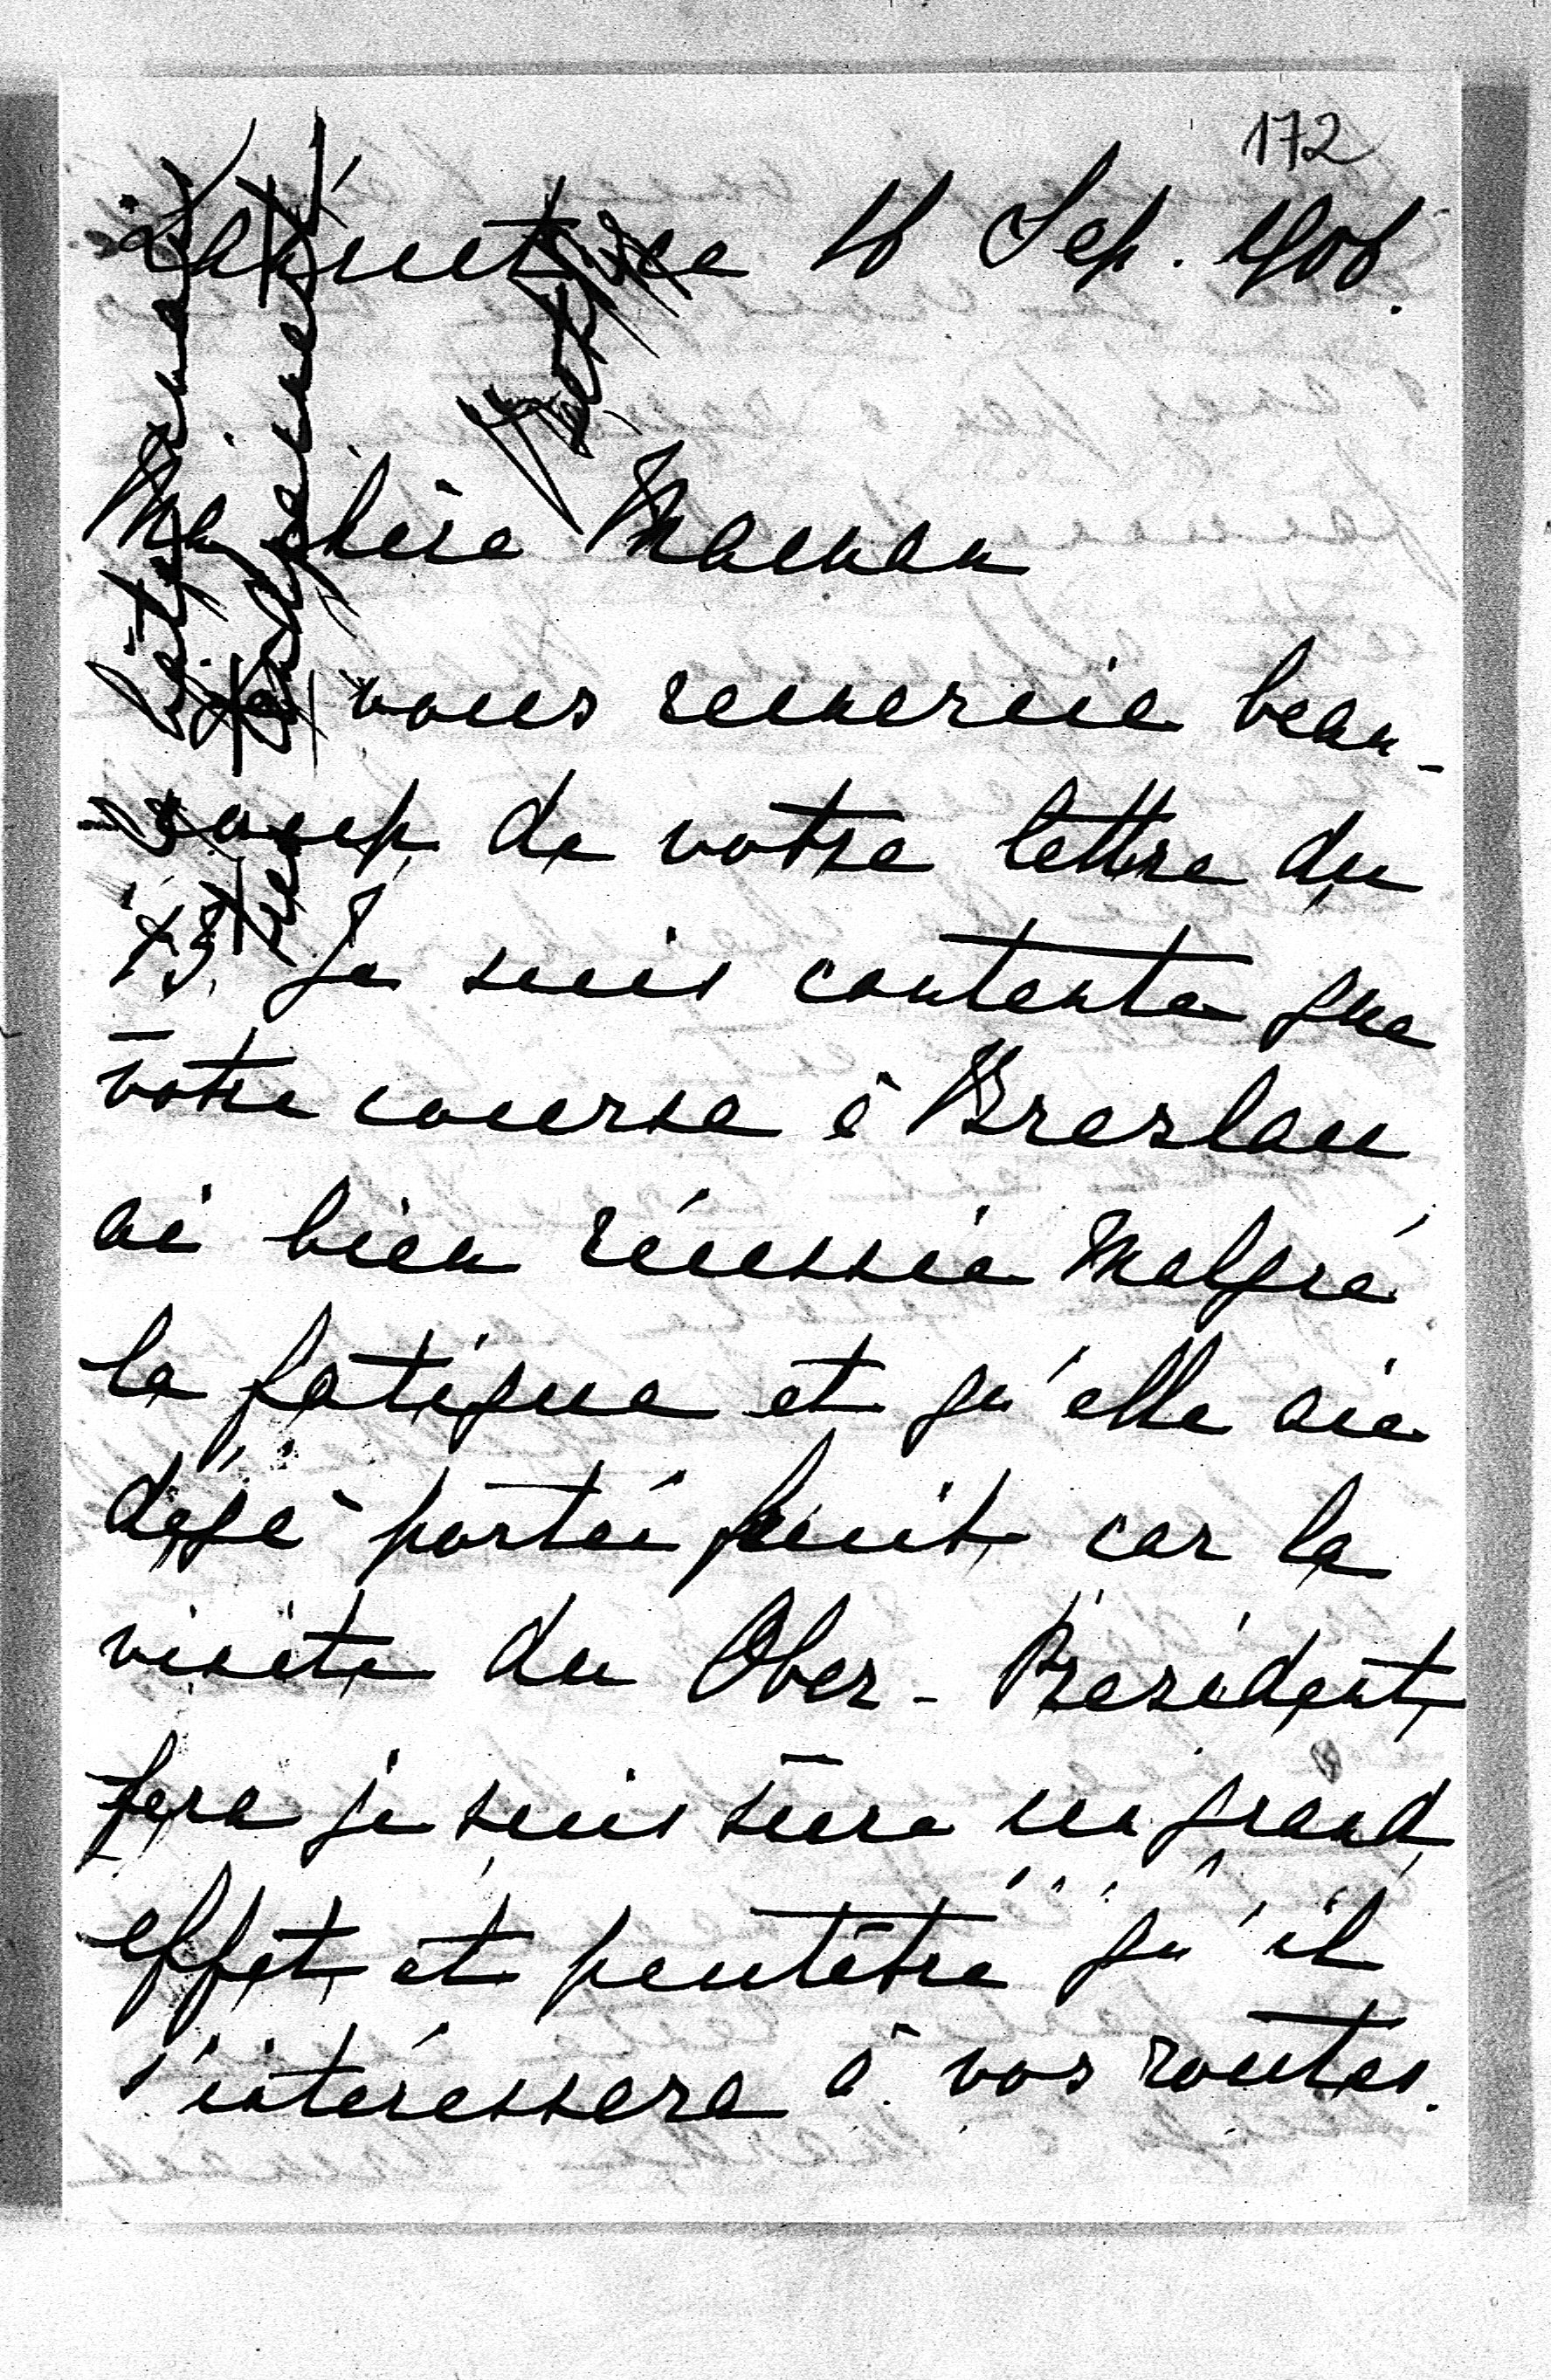 172
Łańcut ce 18 Sep. 1908.
Ma chère Maman
Je vous remercie beau-
coup de votre lettre du
13. Je suis contente que
votre course à Breslau
ai bien réussie malgré
la fatigue et qu'elle aie
déjà porté fruit car la
visite du Ober-Präsident
fera je suis sûre un grand
effet et peutêtre qu'il
s'intéressera à vos routes.